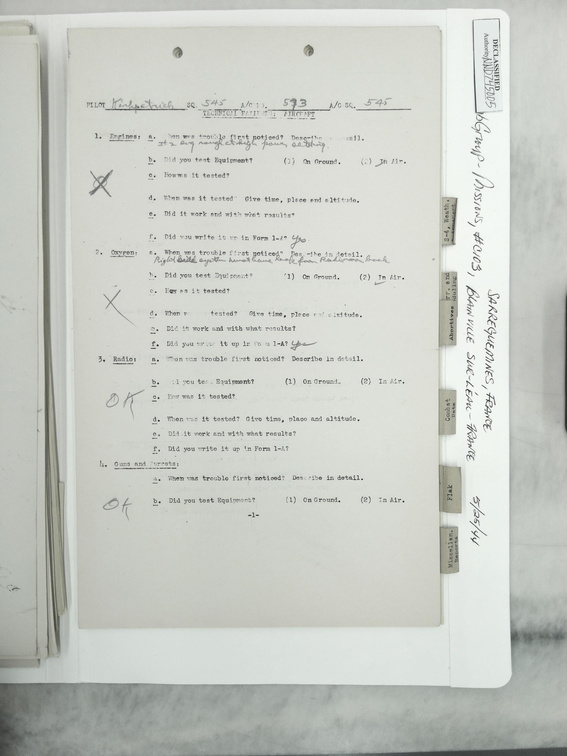 PILOT Kirkpatrick SQ. 545 A/C NO. 593 A/C SQ. 545
TECHNICAL FAILURES: AIRCRAFT
1. Engines: a. When was trouble first noticed? Describe in detail.
rough at high power setting
b. Did you test Equipment? (1) On Ground. (2) In Air.
c. How was it tested?
X
d. When was it tested? Give time, place and altitude.
e. Did it work and with what results?
f. Did you write it up in Form 1-A? Yes
2. Oxygen: a. When was trouble first noticed? Describe in detail.
Right system must have leak from
b. Did you test Equipment? (1) On Ground. (2) In Air.
c. How was it tested?
X
d. When was it tested? Give time, place and altitude.
e. Did it work and with what results?
f. Did you write it up in Form 1-A? Yes
3. Radio: a. When was trouble first noticed? Describe in detail.
b. Did you test Equipment? (1) On Ground. (2) In Air.
c. How was it tested?
OK
d. When was it tested? Give time, place and altitude.
e. Did it work and with what results?
f. Did you write it up in Form 1-A?
4. Guns and Turrets:
a. When was trouble first noticed? Describe in detail.
b. Did you test Equipment? (1) On Ground. (2) In Air.
OK
-1-
S-2, Weath.
Abortives
Combat
Data
Flak
Miscellan.
Reports
DECLASSIFIED
Authority NND745005
Group - Missions, #CU03, SARREGUEMINES, FRANCE
BLAINVILLE SUR-L'EAU - FRANCE 5/25/44